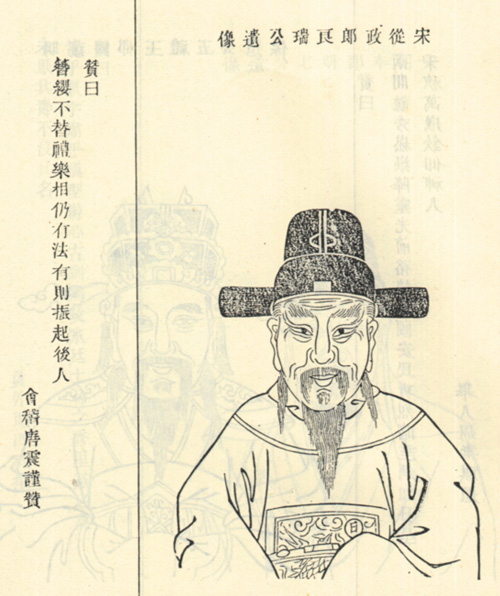 宋從政郎良瑞公遺像
贊曰
簪纓不替禮樂相仍有法有則振起後人
會稽唐震謹贊